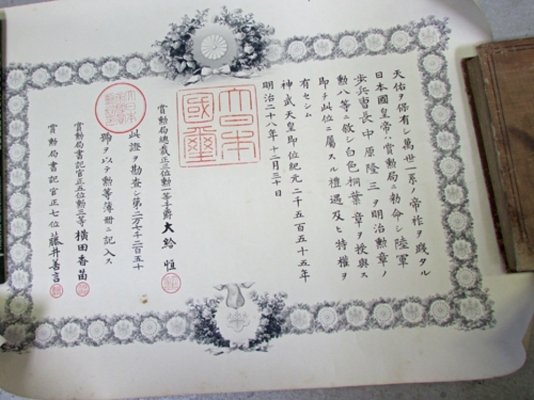 天佑ヲ保有シ萬世一系ノ帝祚ヲ踐タル
日本國皇帝ハ賞勲局ニ勅命シ陸軍
歩兵曹長中原隆三ヲ明治勲章ノ
勲八等ニ敘シ白色桐葉章ヲ授與ス
即チ此位ニ屬スル禮遇及ヒ特權ヲ
有セシム
神武天皇即位紀元二千五百五十五年
明治二十八年十二月三十日
大日本國璽
賞勲局總裁正三位勲一等子爵大給恒
此證ヲ勘査シ第二万七千二百五十
號ヲ以テ勲等簿冊ニ記入ス
賞勲局書記官正五位勲三等横田香苗
賞勲局書記官正七位藤井善言